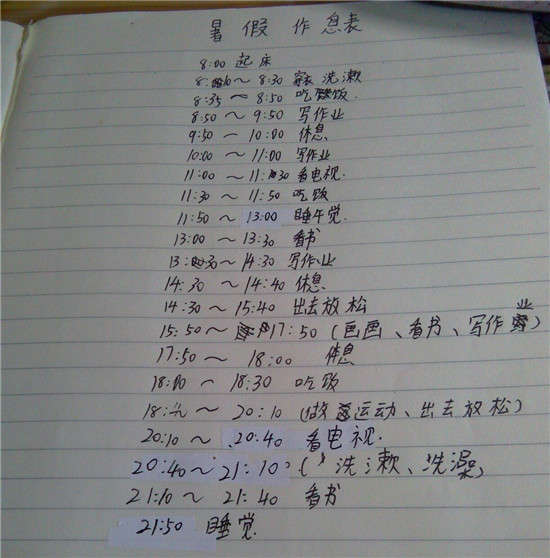 暑假作息表
8:00 起床
8:10~8:30 穿衣 洗漱
8:35~8:50 吃饭
8:50~9:50 写作业
9:50-10:00 休息
10:00~11:00 写作业
11:00~11:30 看电视.
11:30~11:50 吃饭
11:50~13:00 睡午觉.
13:00~13:30 看书
13:30~14:30 写作业
14:30~14:40 休息.
14:30~15:40 出去放松
15:50~17:50 (画画、看书、写作业)
17:50~18:00 休息
18:00~18:30 吃饭
~20:10 (做运动、出去放松)
20:10~20:40 看电视.
20:40~21:10 (洗漱、洗澡)
21:10~21:40 看书
21:50 睡觉.